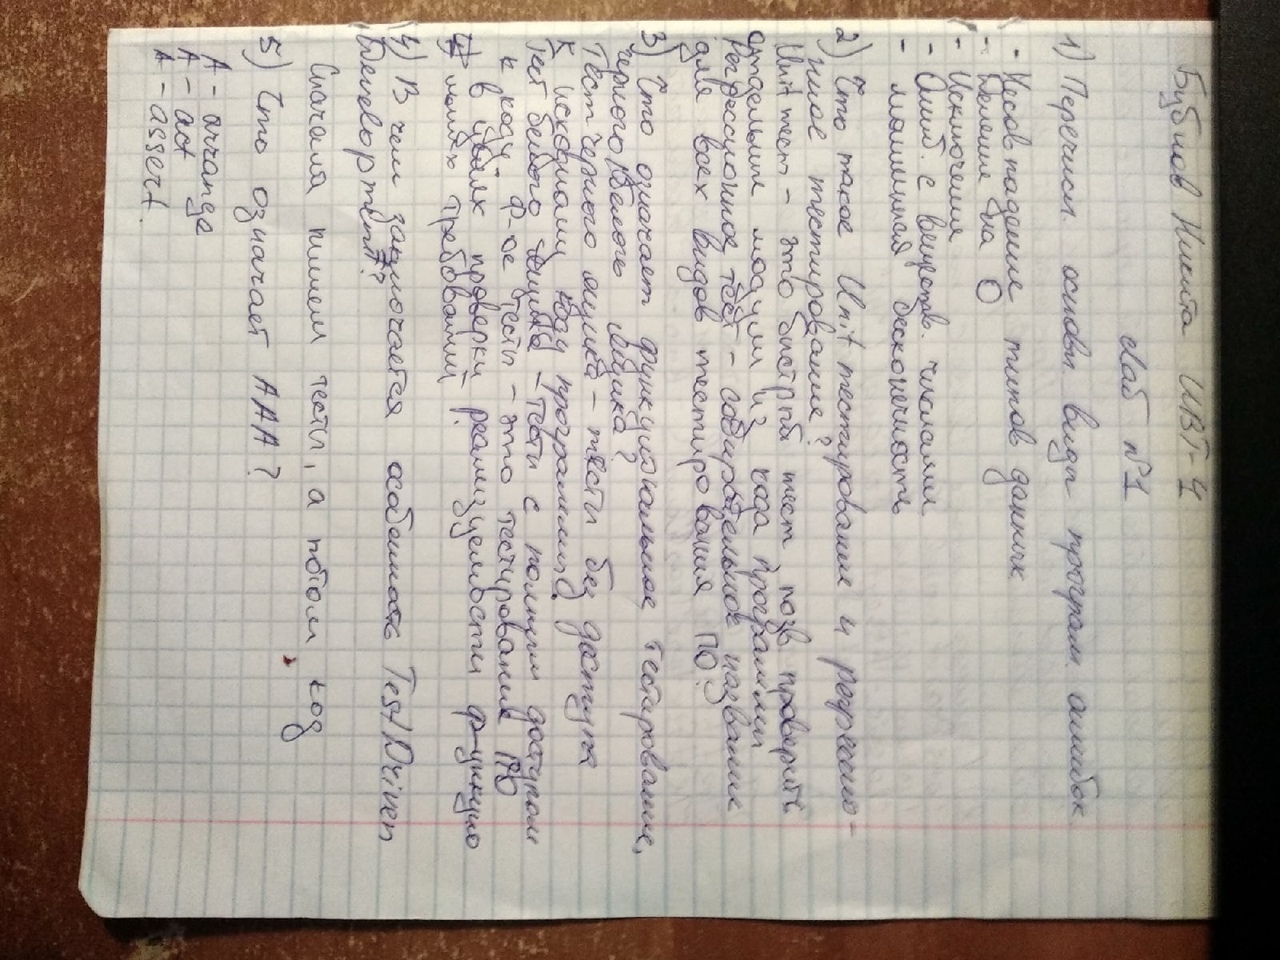 Бубнов Никита ИВТ-4
Лаб №1
1) Перечисл. основн виды програм. ошибок
- Несовпадение типов данных
- Деление на 0
- Исключения
- Ошиб. с веществ. числами
- машинная бесконечность
2) Что такое Unit тестирование и регрессио-
нное тестирование?
Unit тест - это быстрый тест позв проверить
отдельные модули из кода программы
Регрессионное тест - собирательное название
для всех видов тестирования ПО
3) Что означает функциональное тестирование,
черного/белого ящика?
Тест черного ящика - тесты без доступа
к исходному коду программы
Тест белого ящика - тесты с полным доступом
к коду. Ф-ое тесты - это тестирование ПО
в целях проверки реализуемости функцио
нальных требований.
4) В чем заключается особенность Test Driven
Development?
Сначала пишем тесты, а потом код
5) Что означает AAA?
A - arrange
A - act
A - assert.